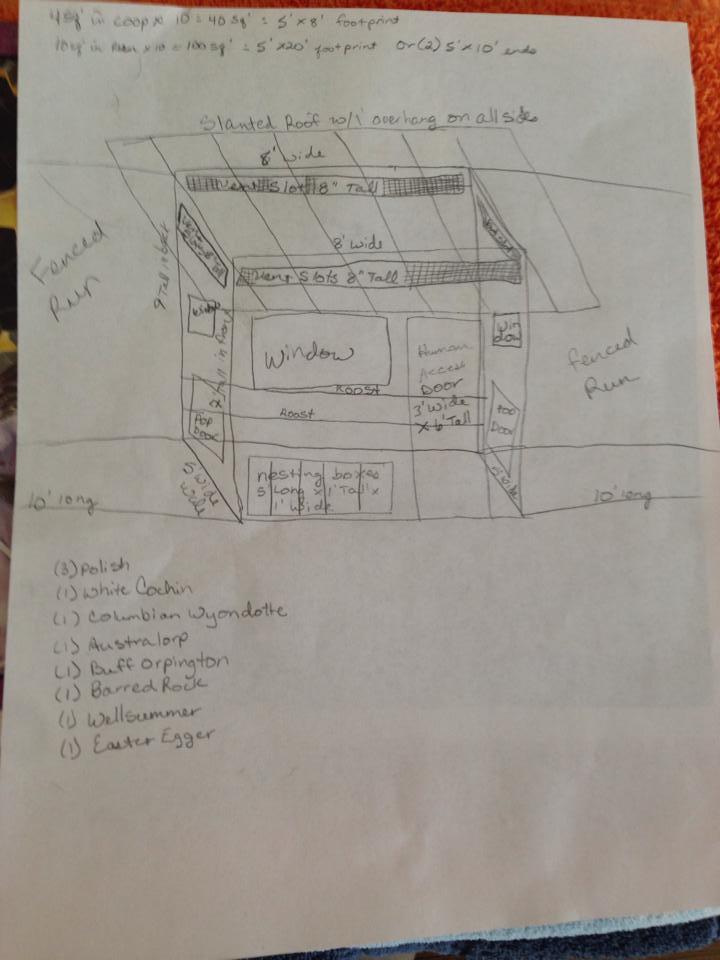 4 sq' in coop x 10 = 40 sq' = 5' x 8' footprint
10 sq' in Run x 10 = 100 sq' = 5' x 20' footprint or (2) 5' x 10' ends
Slanted Roof w/1' overhang on all sides
8' wide
Vent Slot 8" Tall
8' wide
Vent Slots 8" Tall
Fenced
Run
Window
Window
Human
Access
Door
3' Wide
x 6' Tall
Win
dow
Fenced
Run
Tall in Front
Roost
Roost
Pop
Door
Pop
Door
5' wide
wide
nesting boxes
5' Long x 1' Tall x
1' Wide
5' wide
10' long
10' long
(3) Polish
(1) White Cochin
(1) Columbian Wyondotte
(1) Australorp
(1) Buff Orpington
(1) Barred Rock
(1) Wellsummer
(1) Easter Egger